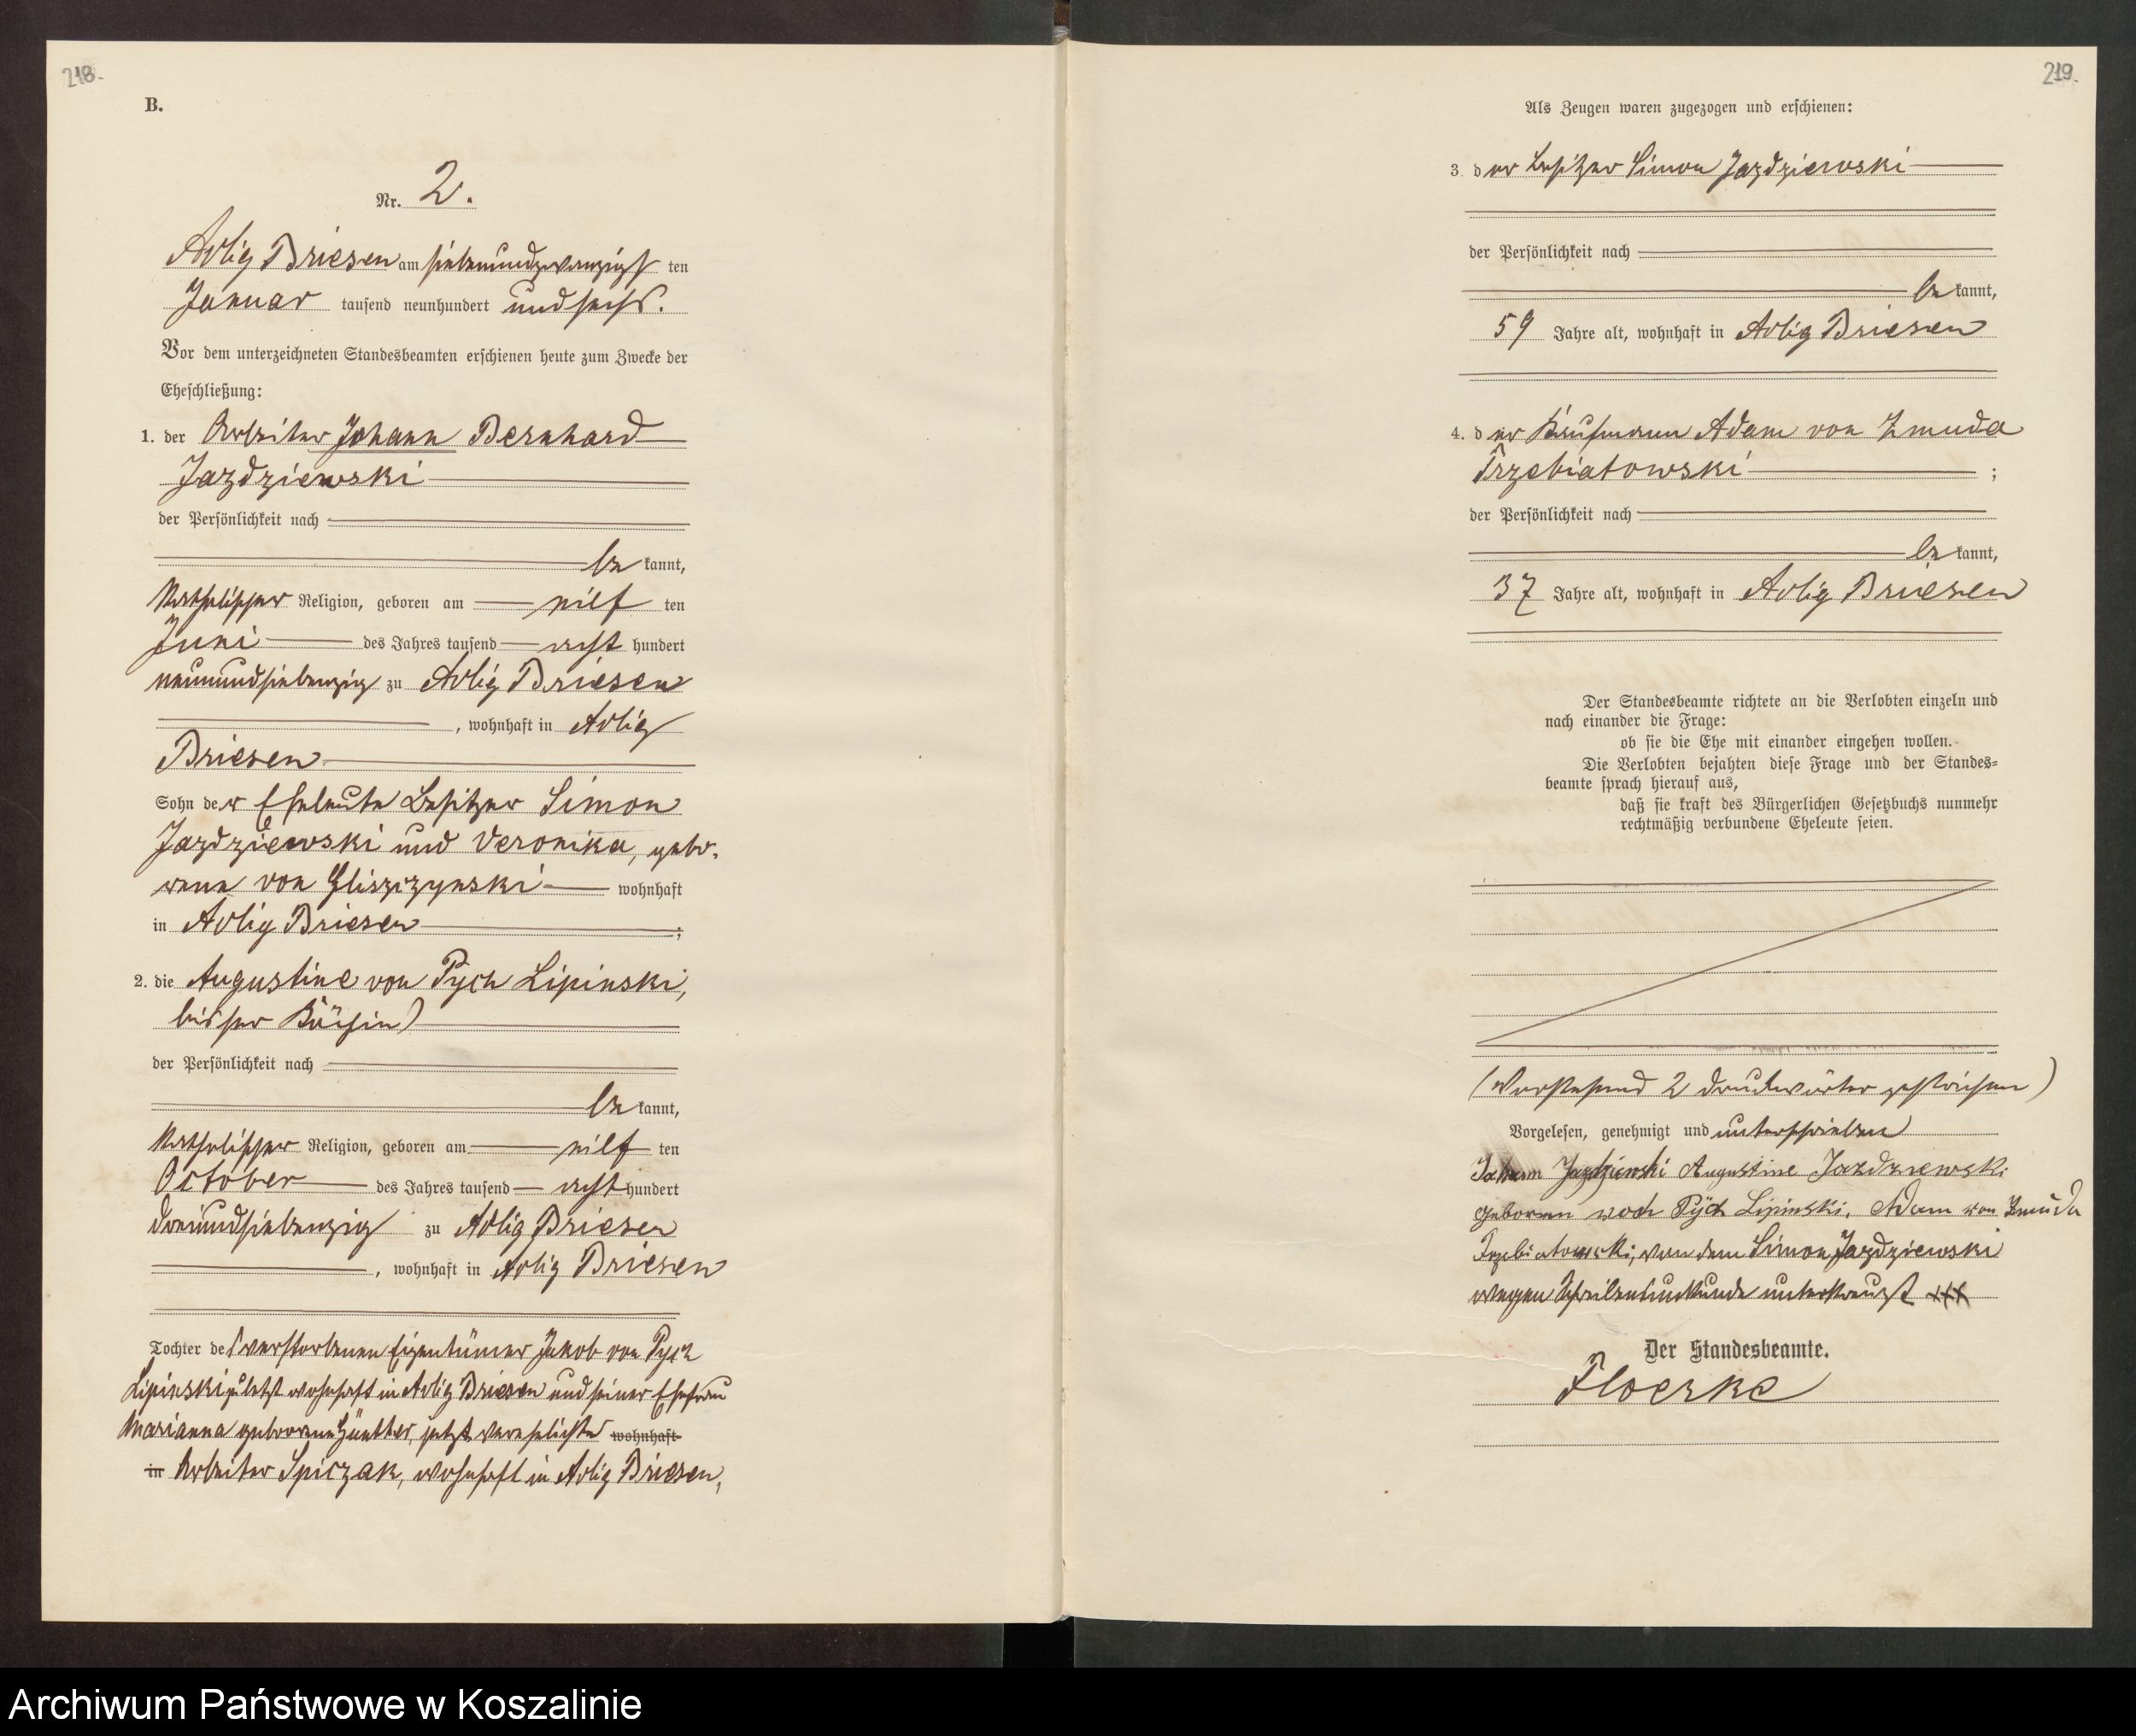 218.
B.
Nr. 2.
Adlig Briesen am siebenundzwanzigsten
Januar tausend neunhundert und sechs.
Vor dem unterzeichneten Standesbeamten erschienen heute zum Zwecke der
Eheschließung:
1. der Arbeiter Johann Bernhard
Jazdziewski
der Persönlichkeit nach
bekannt,
katholischer Religion, geboren am elften
Juni des Jahres tausend achthundert
neunundsiebenzig zu Adlig Briesen
, wohnhaft in Adlig
Briesen
Sohn der Eheleute Besitzer Simon
Jazdziewski und Veronika, gebo-
rene von Gliszczynski wohnhaft
in Adlig Briesen;
2. die Augustine von Pych Lipinski,
bisher Köchin)
der Persönlichkeit nach
bekannt,
katholischer Religion, geboren am elften
October des Jahres tausend achthundert
dreiundsiebenzig zu Adlig Briesen
, wohnhaft in Adlig Briesen
Tochter des verstorbenen Eigentümer Jakob von Pych
Lipinski zuletzt wohnhaft in Adlig Briesen und seiner Ehefrau
Marianna geborene Günther, jetzt verehelichte wohnhaft
in Arbeiter Spiczak, wohnhaft in Adlig Briesen,
219.
Als Zeugen waren zugezogen und erschienen:
3. der Besitzer Simon Jazdziewski
der Persönlichkeit nach
bekannt,
59 Jahre alt, wohnhaft in Adlig Briesen
4. der Kaufmann Adam von Zmuda
Trzebiatowski;
der Persönlichkeit nach
bekannt,
37 Jahre alt, wohnhaft in Adlig Briesen
Der Standesbeamte richtete an die Verlobten einzeln und
nach einander die Frage:
ob sie die Ehe mit einander eingehen wollen.
Die Verlobten bejahten diese Frage und der Standes-
beamte sprach hierauf aus,
daß sie kraft des Bürgerlichen Gesetzbuchs nunmehr
rechtmäßig verbundene Eheleute seien.
(Vorstehend 2 Druckwörter gestrichen)
Vorgelesen, genehmigt und unterschrieben
Johann Jazdziewski Augustine Jazdziewski
geboren von Pych Lipinski, Adam von Zmuda
Trzebiatowski, von dem Simon Jazdziewski
wegen Schreibensunkunde unterkreuzt +++
Der Standesbeamte.
Floerke
Archiwum Państwowe w Koszalinie